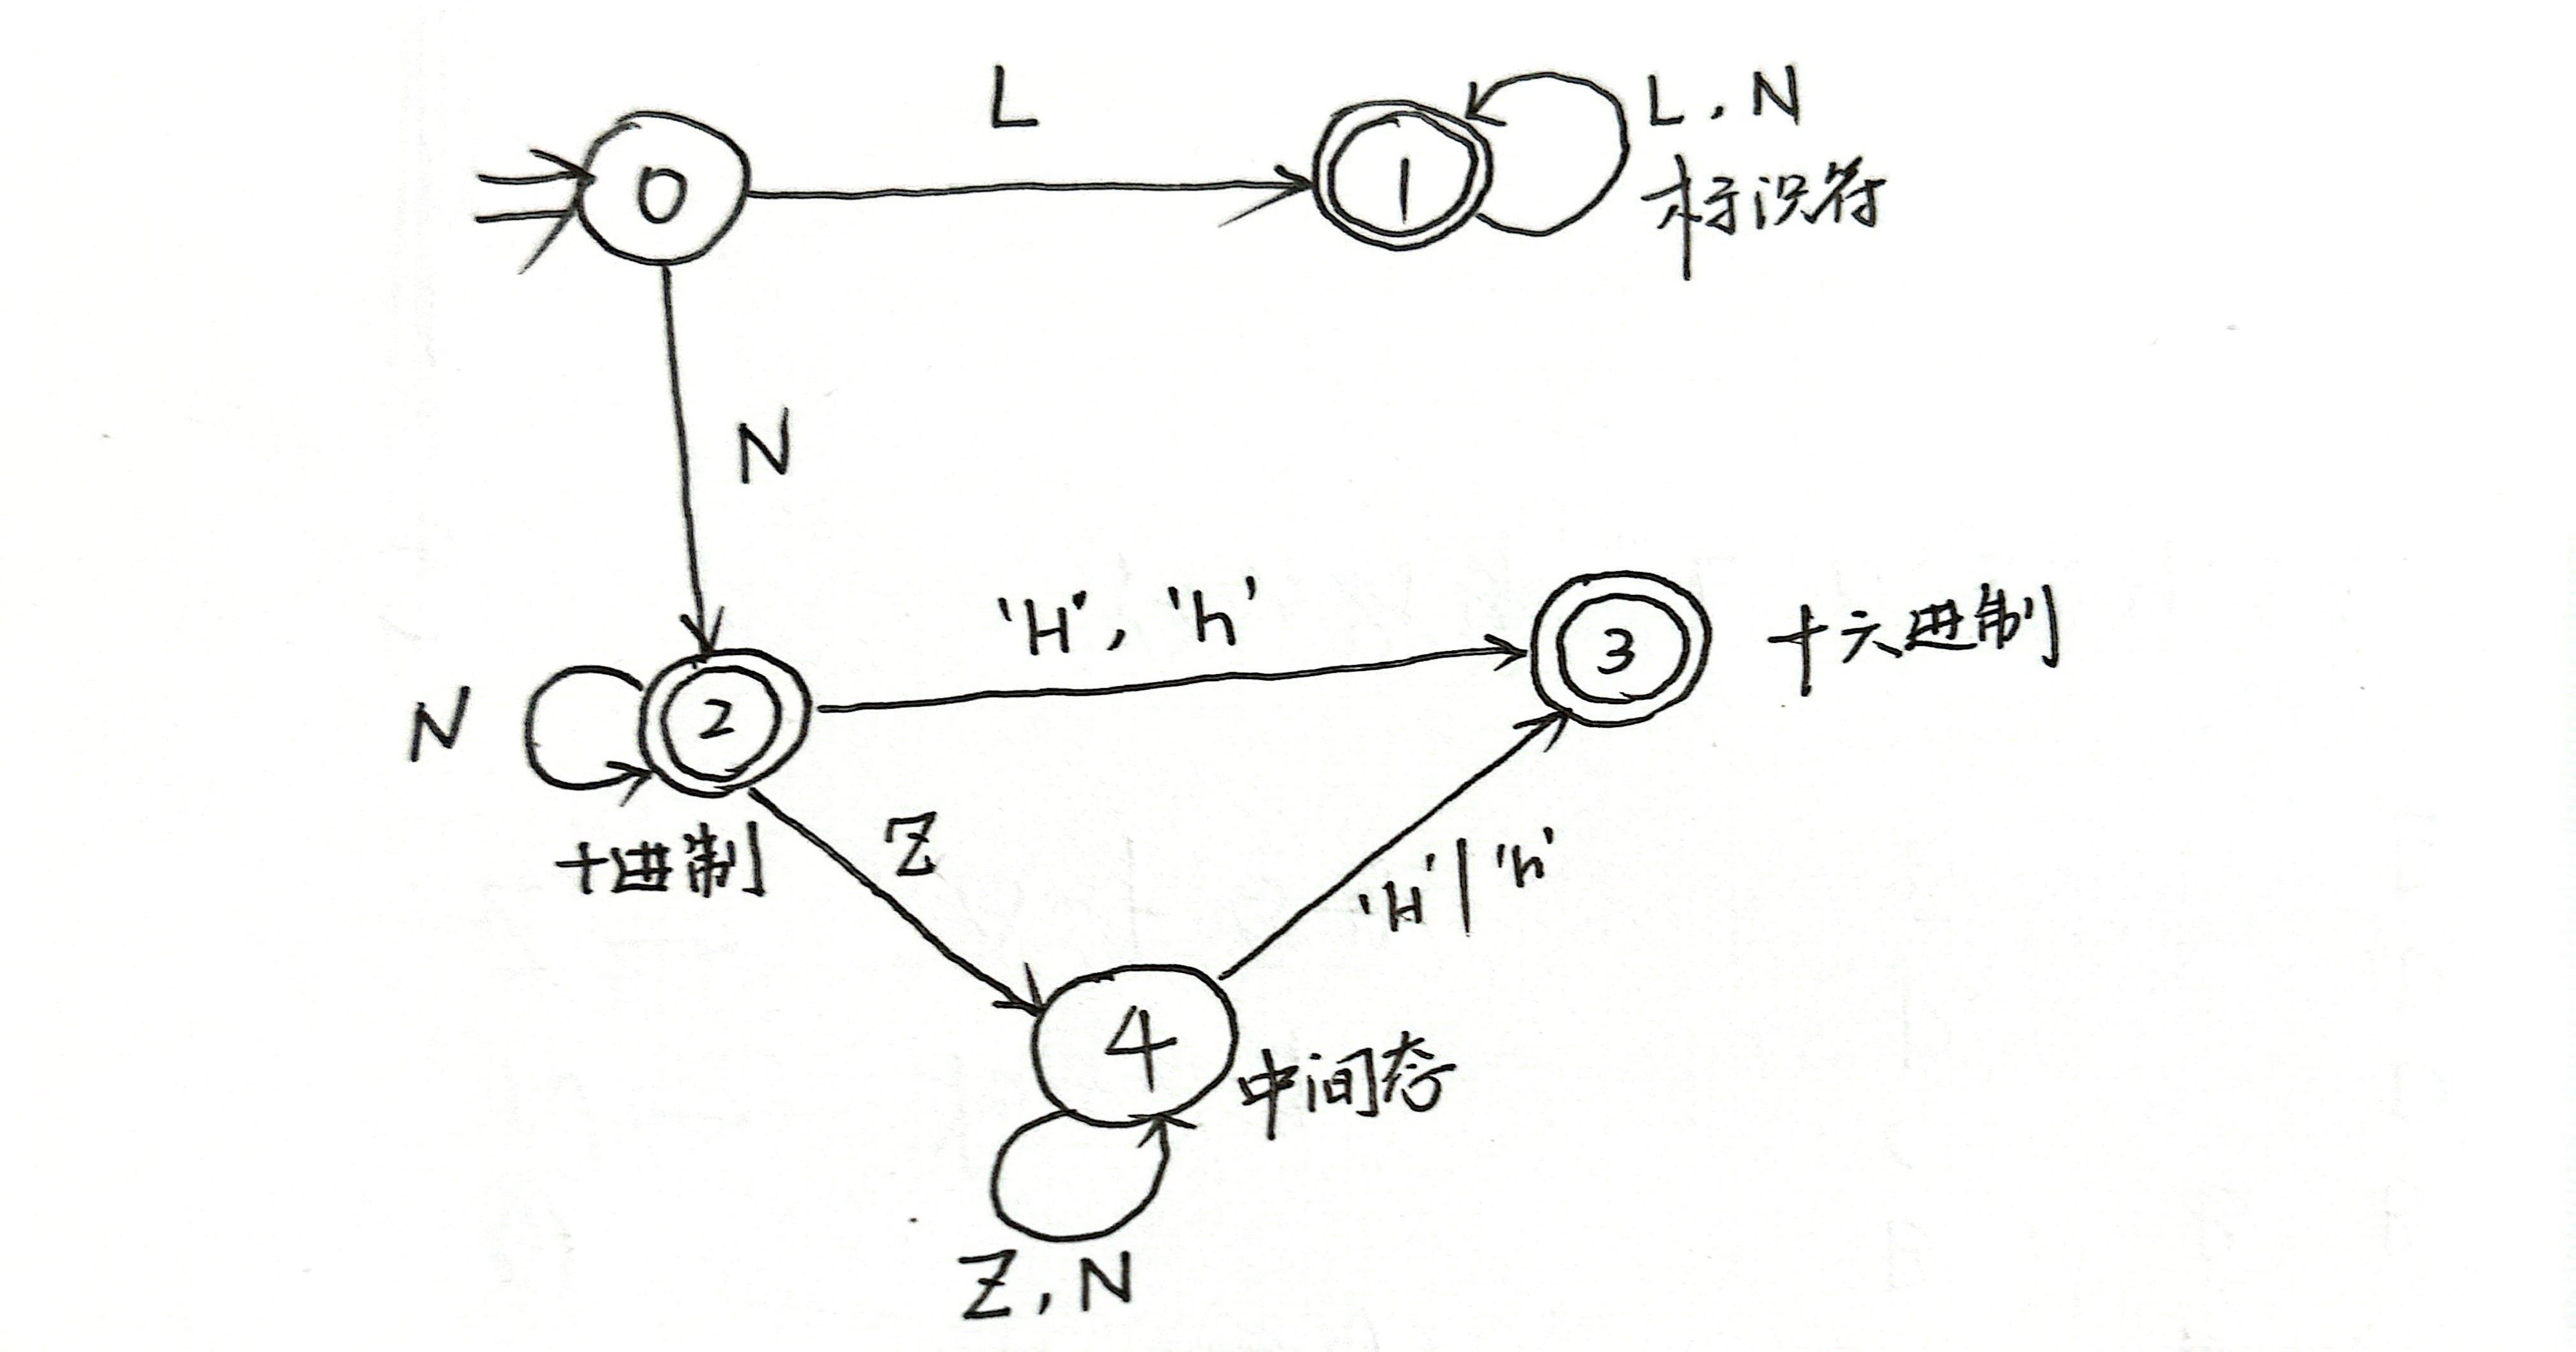 L
L, N
0
1
标识符
N
'H', 'h'
3
十六进制
N
2
Z
十进制
'H' | 'h'
4
中间态
Z, N